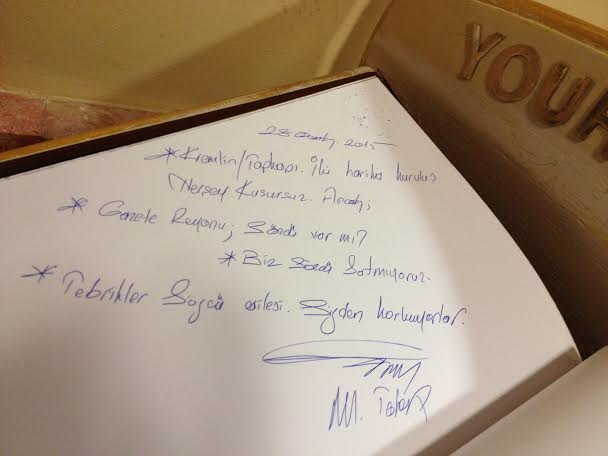 YOUR
28 Ocak, 2015
* Kremlin/Topkapı. İki harika kuruluş
Herşey Kusursuz. Ancak;
* Gazete Reyonu; Sözcü var mı?
* Biz Sözcü Satmıyoruz.
* Tebrikler Sözcü ailesi. Sizden korkuyorlar.
M.